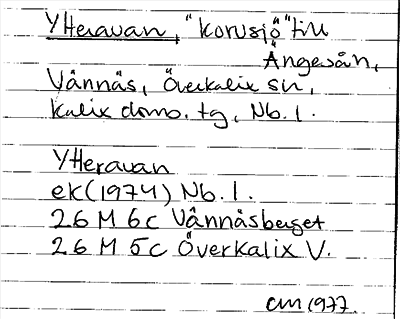 Ytteravan, "korvsjö" till
Ängesån,
Vännäs, Överkalix sn,
Kalix doms. tg, Nb. l.
Ytteravan
ek (1974) Nb. l.
26 M 6c Vännäsberget
26 M 5c Överkalix V.
cm 1977.